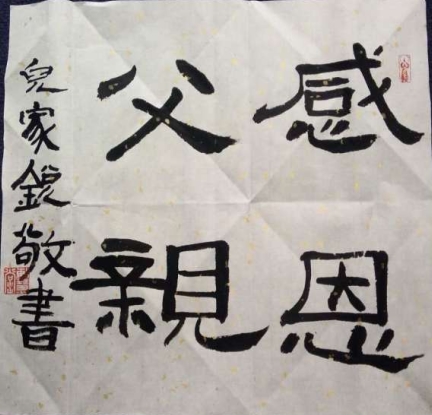 感恩
父親
兒家銀敬書